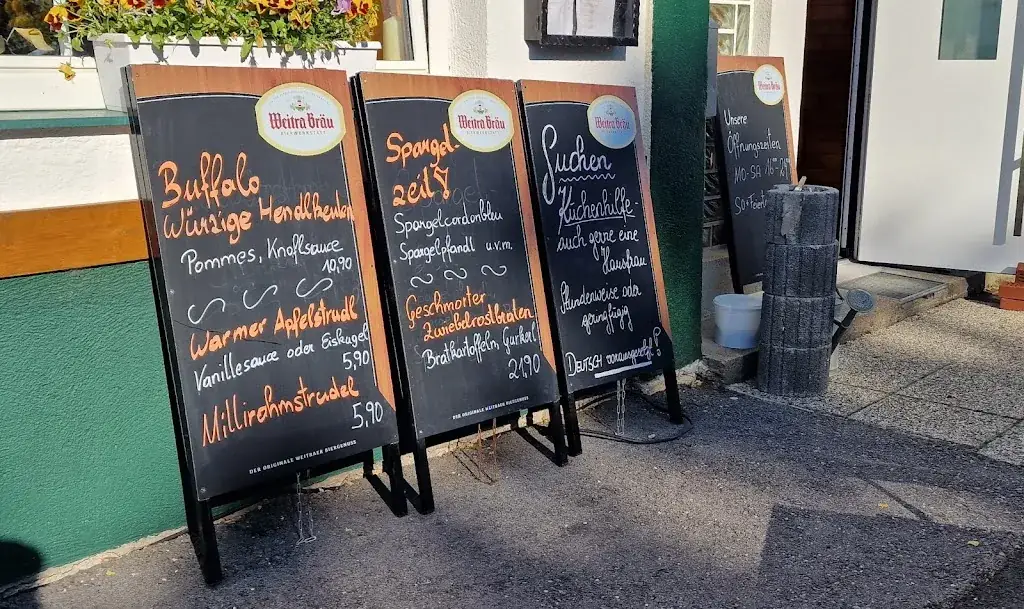 Weitra Bräu
BIERWERKSTATT
Buffalo
Würzige Hendlkeulen
Pommes, Knoflsauce
10,90
Warmer Apfelstrudl
Vanillesauce oder Eiskugel
5,90
Millirahmstrudel
5,90
DER ORIGINALE WEITRAER BIERGENUSS
Weitra Bräu
BIERWERKSTATT
Spargel-
zeit
Spargelcordonbleu
Spargelpfandl u.v.m.
Geschmorter
Zwiebelrostbraten
Bratkartoffeln, Gurkerl
21,90
DER ORIGINALE WEITRAER BIERGENUSS
Weitra Bräu
BIERWERKSTATT
Suchen
Küchenhilfe-
auch gerne eine
Hausfrau
Stundenweise oder
geringfügig
DEUTSCH vorausgesetzt!
Weitra Bräu
Unsere
Öffnungszeiten
MO-SA